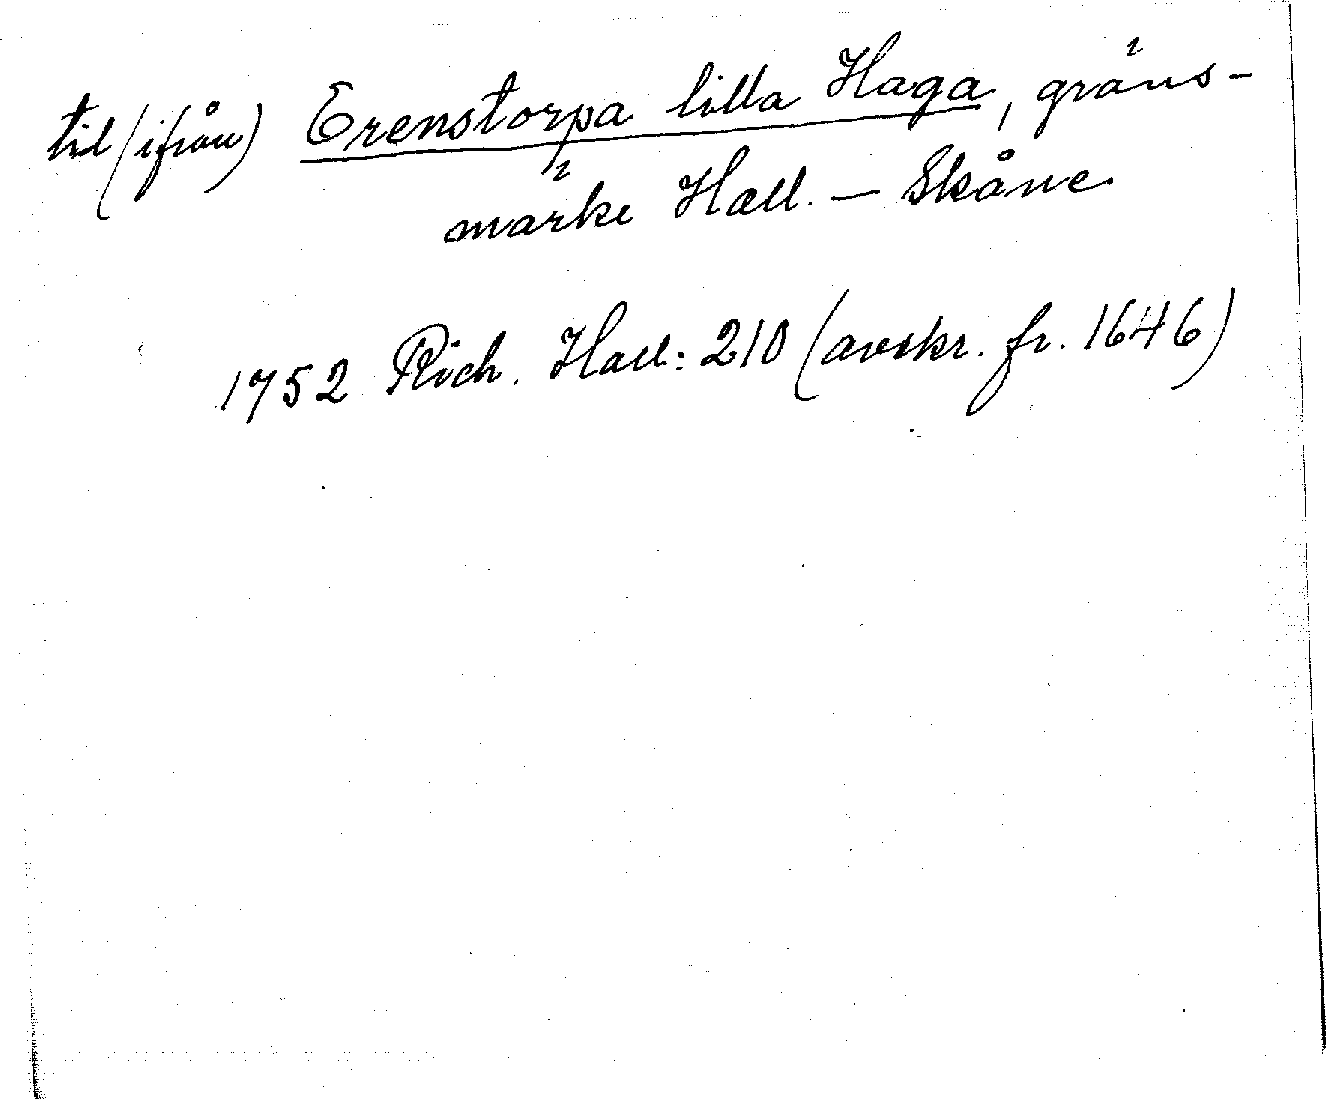 til (ifrån) Erenstorpa lilla Haga, gräns-
märke Hall. – Skåne.
1752 Rich. Hall: 210 (avskr. fr. 1646)